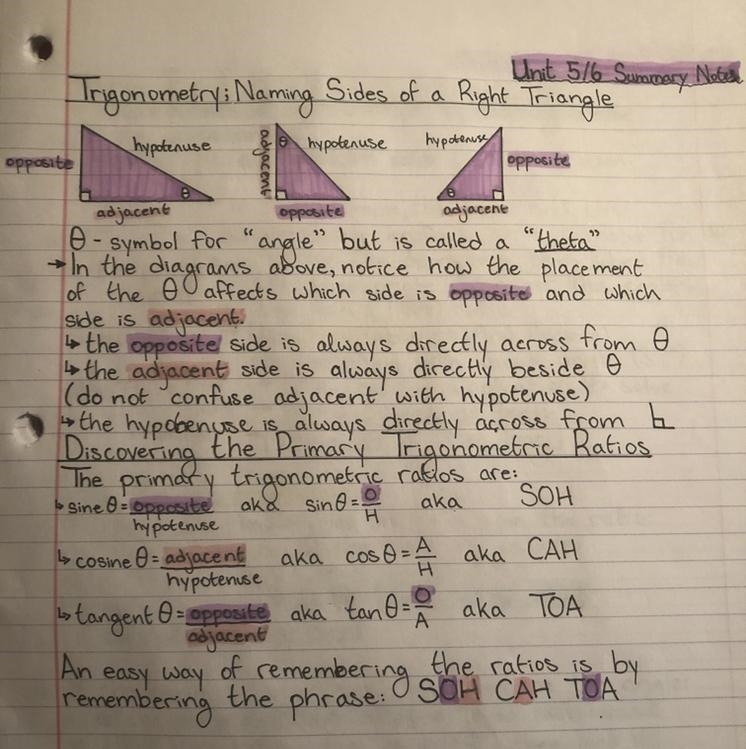 Unit 5/6 Summary Notes
Trigonometry; Naming Sides of a Right Triangle
opposite
hypotenuse
θ
adjacent
adjacent
θ
hypotenuse
opposite
hypotenuse
opposite
θ
adjacent
θ - symbol for "angle" but is called a "theta"
→ In the diagrams above, notice how the placement
of the θ affects which side is opposite and which
side is adjacent.
↳ the opposite side is always directly across from θ
↳ the adjacent side is always directly beside θ
(do not confuse adjacent with hypotenuse)
↳ the hypotenuse is always directly across from ⊾
Discovering the Primary Trigonometric Ratios
The primary trigonometric ratios are:
↳ sine θ = opposite/hypotenuse aka sin θ = O/H aka SOH
↳ cosine θ = adjacent/hypotenuse aka cos θ = A/H aka CAH
↳ tangent θ = opposite/adjacent aka tan θ = O/A aka TOA
An easy way of remembering the ratios is by
remembering the phrase: SOH CAH TOA